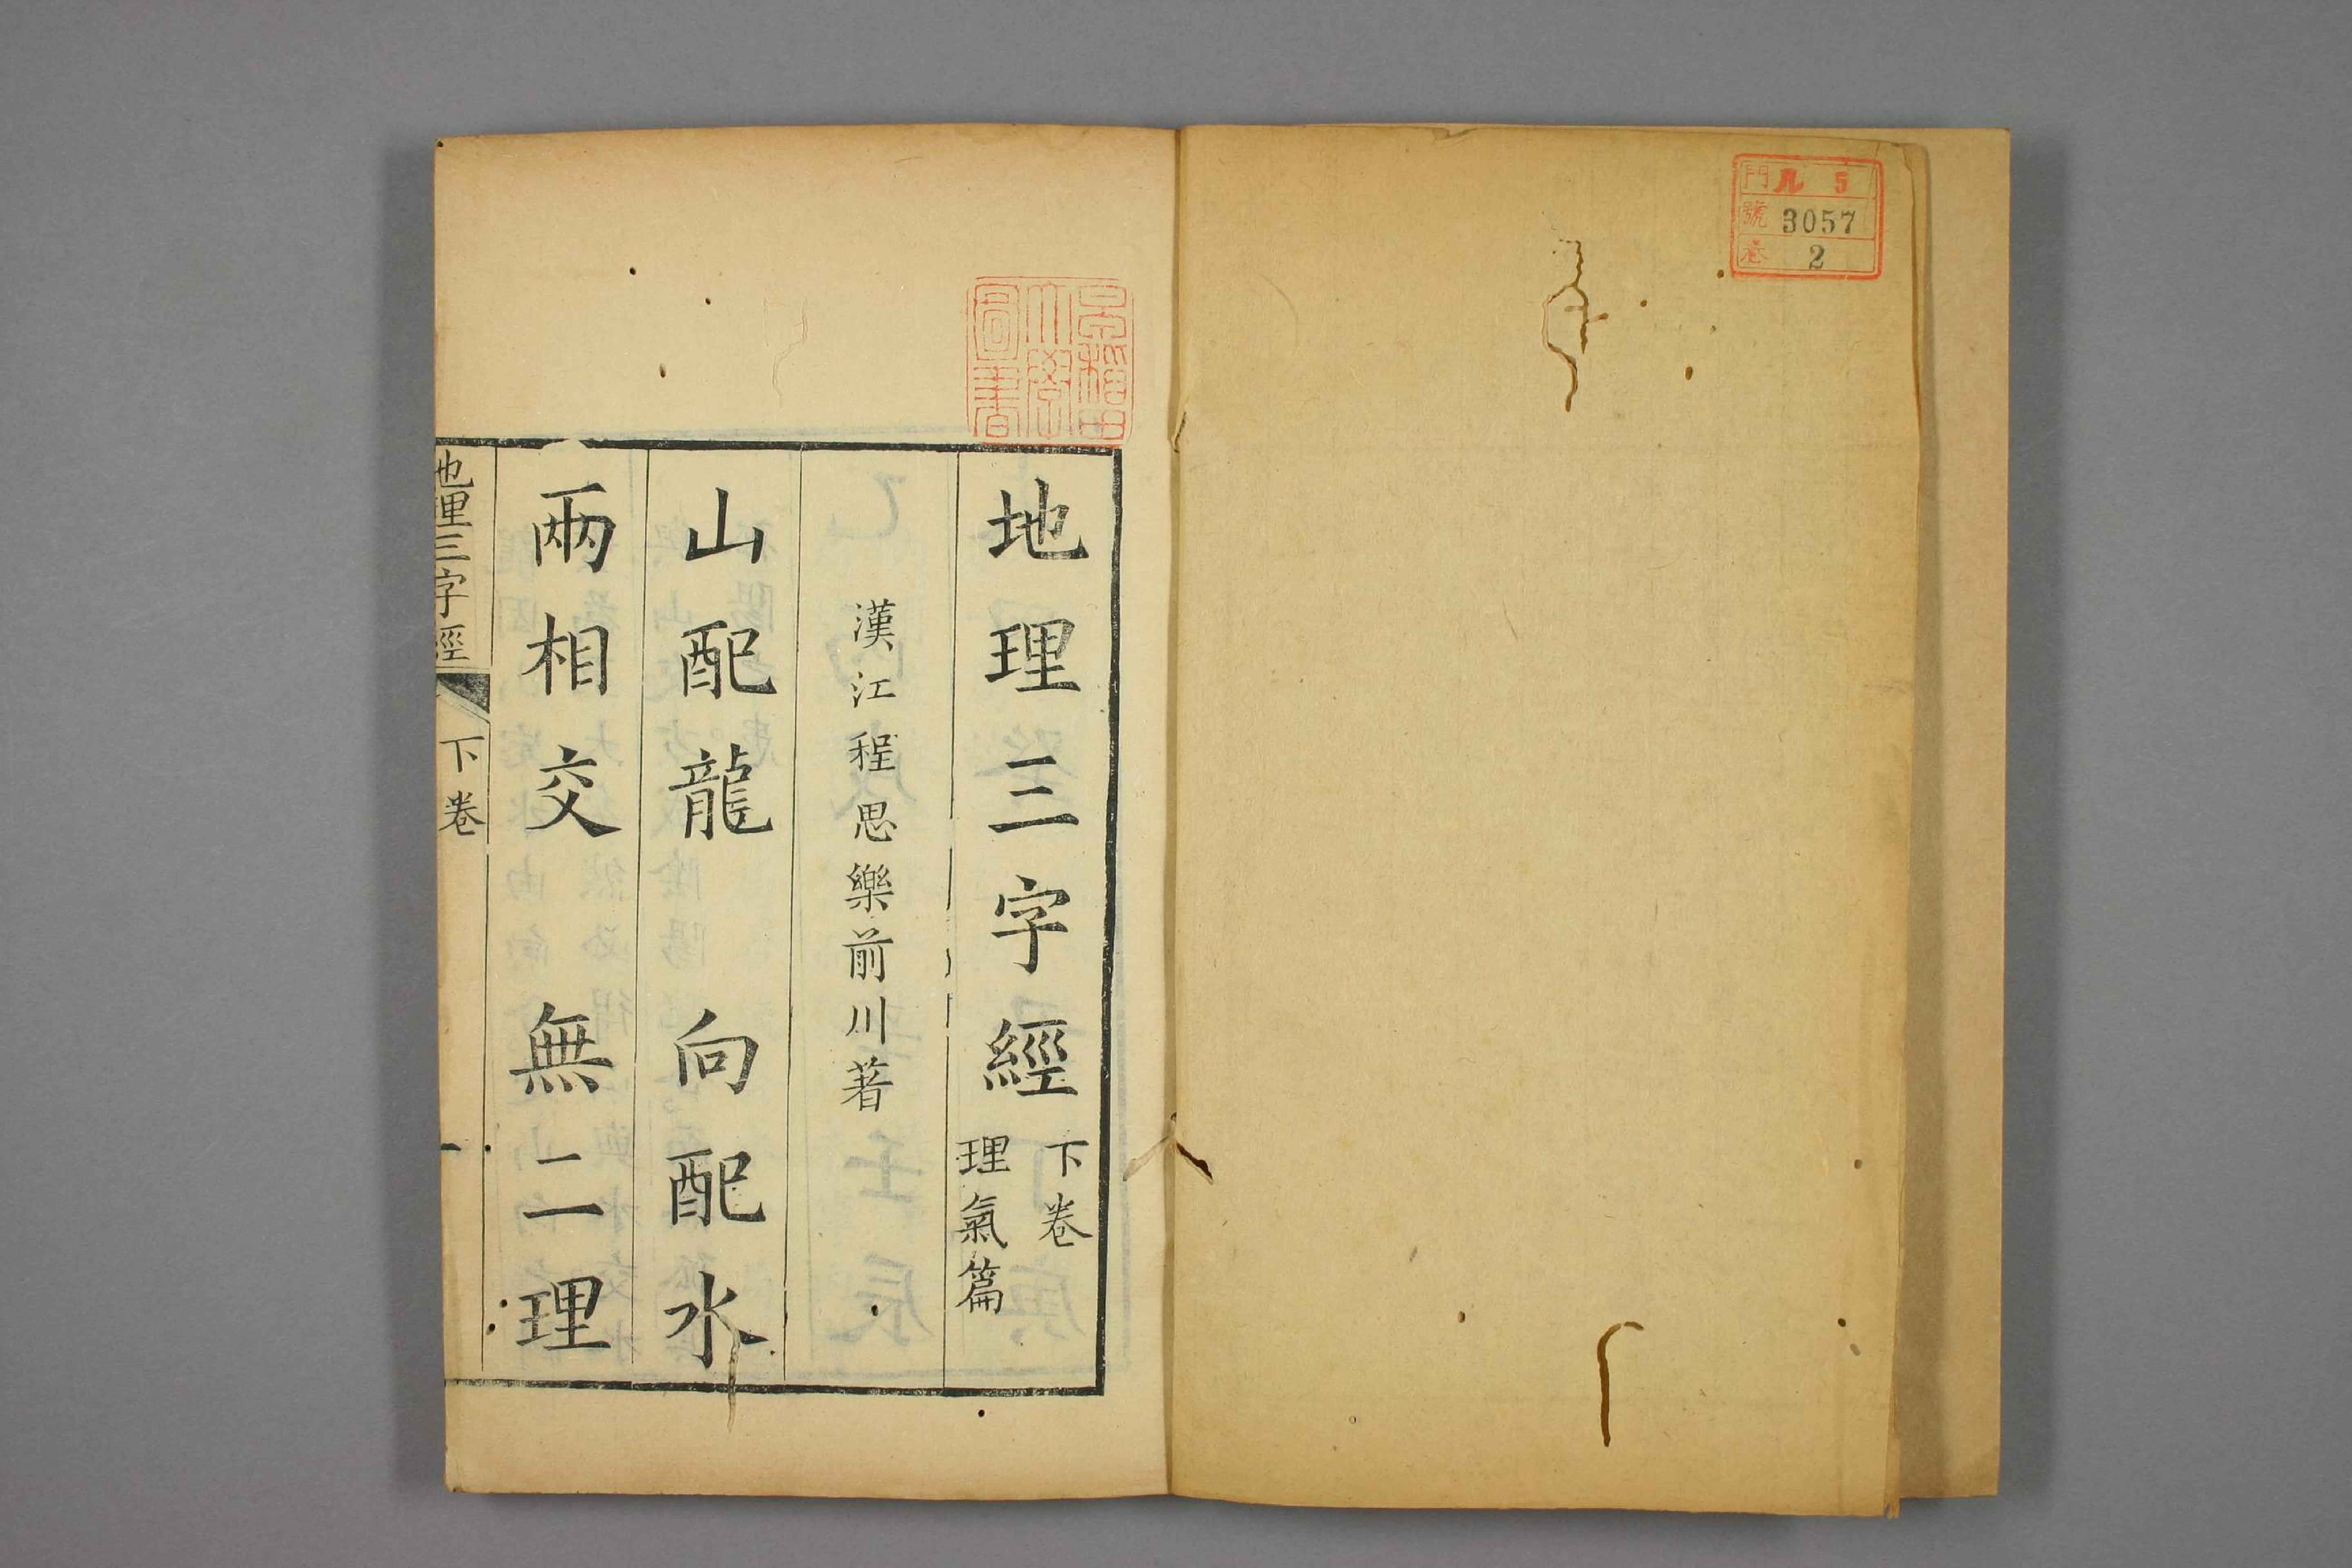 門 凡 5
號 3057
卷 2
早稲田
大學
圖書
地理三字經
下卷
理氣篇
漢江程思樂前川著
山配龍　向配水
兩相交　無二理
地理三字經　下卷　一